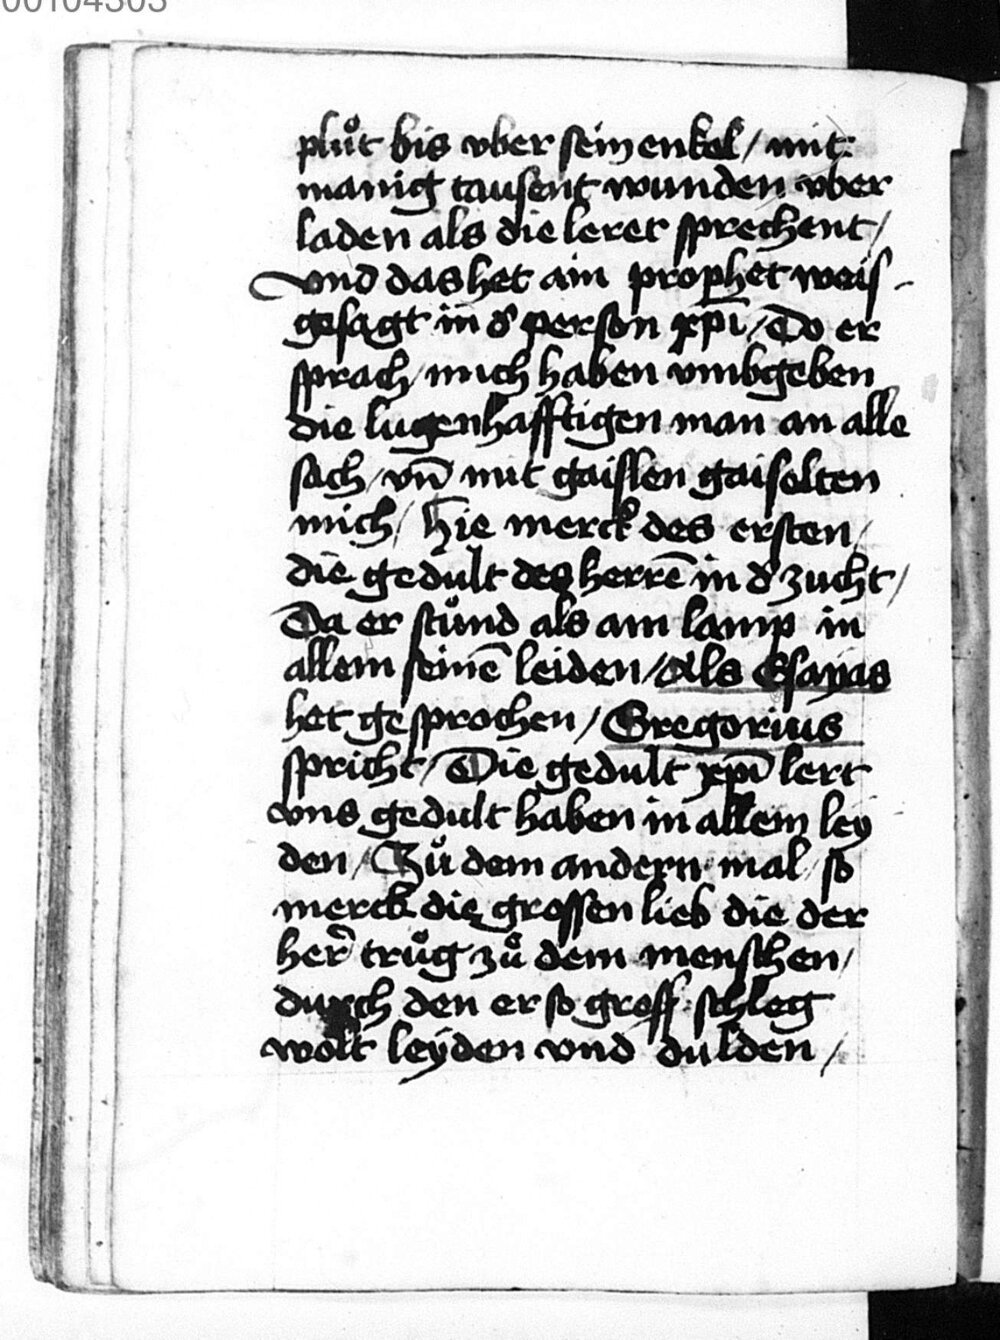 00104303
plůt bis vber sein enkel / mit
manig tausent wunden vber
laden als die lerer sprechent /
vnd das het ain prophet weis
gesagt in d' person xp̄i / Do er
sprach / mich haben vmbgeben
die lugenhafftigen man an alle
sach / vn̄ mit gaislen gaiselten
mich / Hie merck des ersten /
die gedult des herrē in d' zucht /
Da er stůnd als am lamp in
allem seinē leiden / Als Esayas
het gesprochen / Gregorius
spricht / Die gedult xp̄i lert
vns gedult haben in allem ley
den / Zů dem andern mal / so
merck die grossen lieb die der
her' trůg zů dem menschen /
durch den er so gross schleg
wolt leyden vnd dulden /